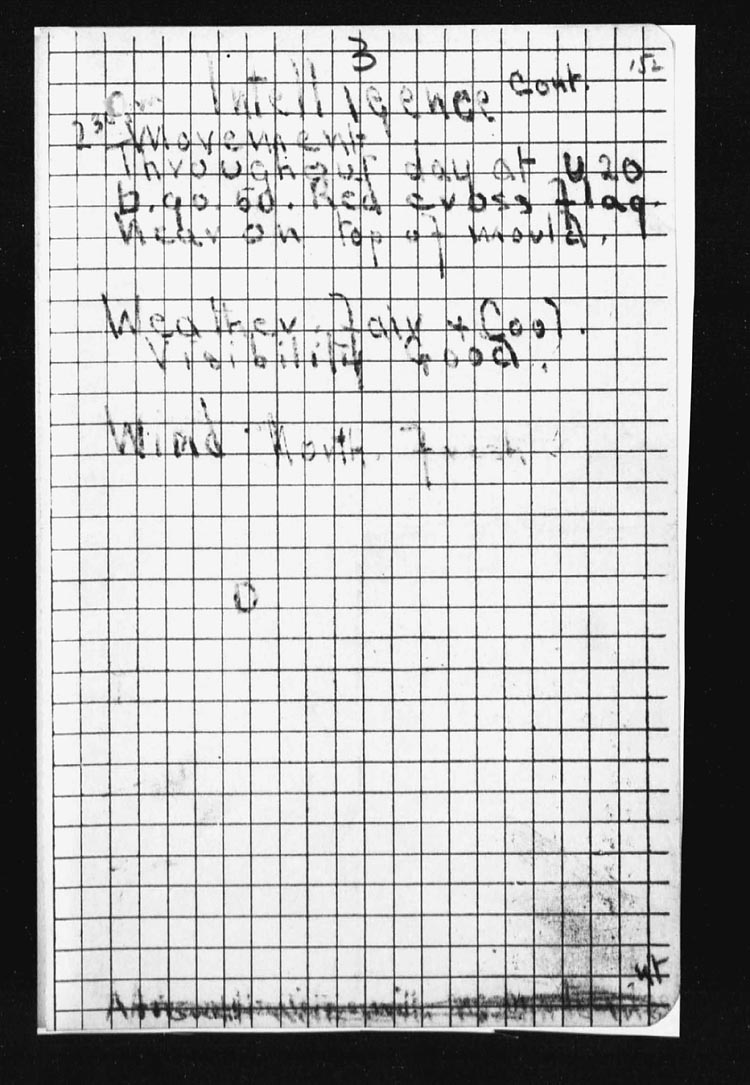 3
152
Intelligence Cont.
23rd Movement
Throughout day at U 20
b. 90. 50. Red cross flag.
Near on top of mould.
Weather. Fair + Cool.
Visibility Good.
Wind. North. Fresh
O